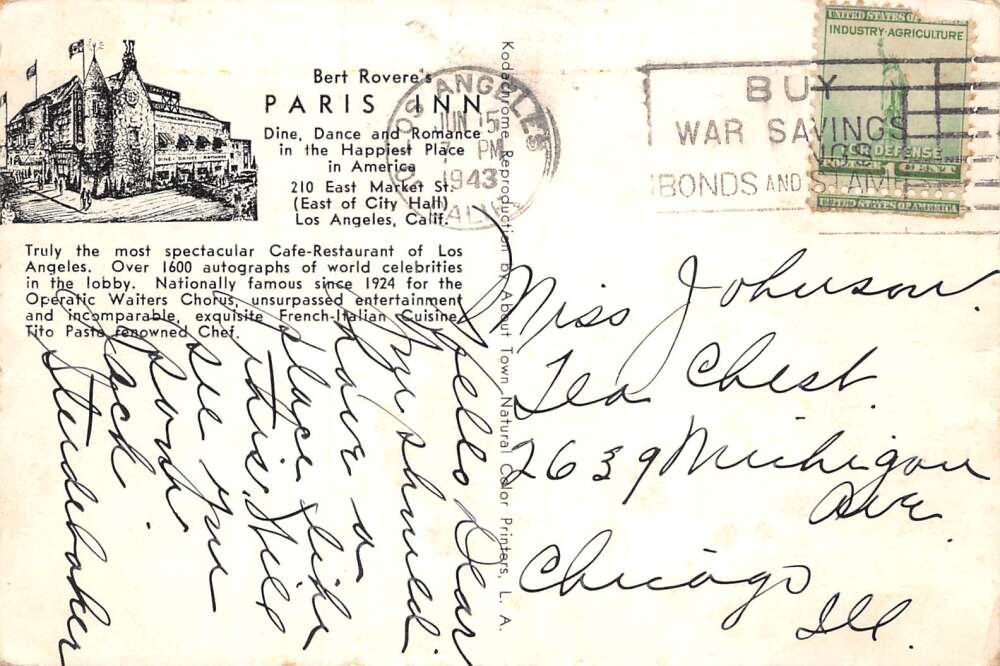 Bert Rovere's
PARIS INN
Dine, Dance and Romance
in the Happiest Place
in America
210 East Market St.
(East of City Hall)
Los Angeles, Calif.
Truly the most spectacular Cafe-Restaurant of Los
Angeles. Over 1600 autographs of world celebrities
in the lobby. Nationally famous since 1924 for the
Operatic Waiters Chorus, unsurpassed entertainment
and incomparable, exquisite French-Italian Cuisine.
Tito Pasta renowned Chef.
DINE - DANCE
Kodachrome Reproduction by About Town Natural Color Printers, L. A.
LOS ANGELES
JUN 15
PM
1943
CALIF.
BUY
WAR SAVINGS
BONDS AND STAMPS
UNITED STATES OF
INDUSTRY-AGRICULTURE
FOR DEFENSE
1 CENT
UNITED STATES OF AMERICA
Hello Dear
You should
have a
place like
this. Will
see you
soon
Jack
Studebaker
Miss Johnson
Tea Chest
2639 Michigan
Ave.
Chicago
Ill.